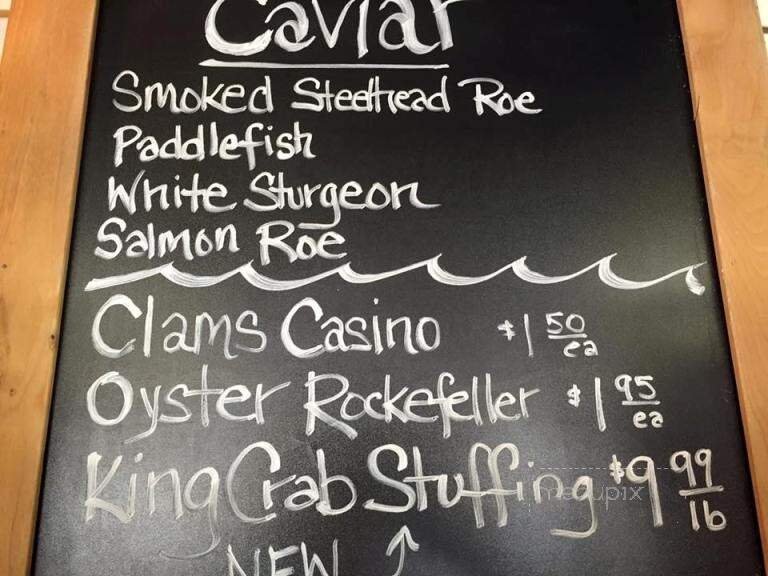 Caviar
Smoked Steelhead Roe
Paddlefish
White Sturgeon
Salmon Roe
Clams Casino $1 50 ea
Oyster Rockefeller $1 95 ea
King Crab Stuffing $9 99 lb
menupix
NEW ↑